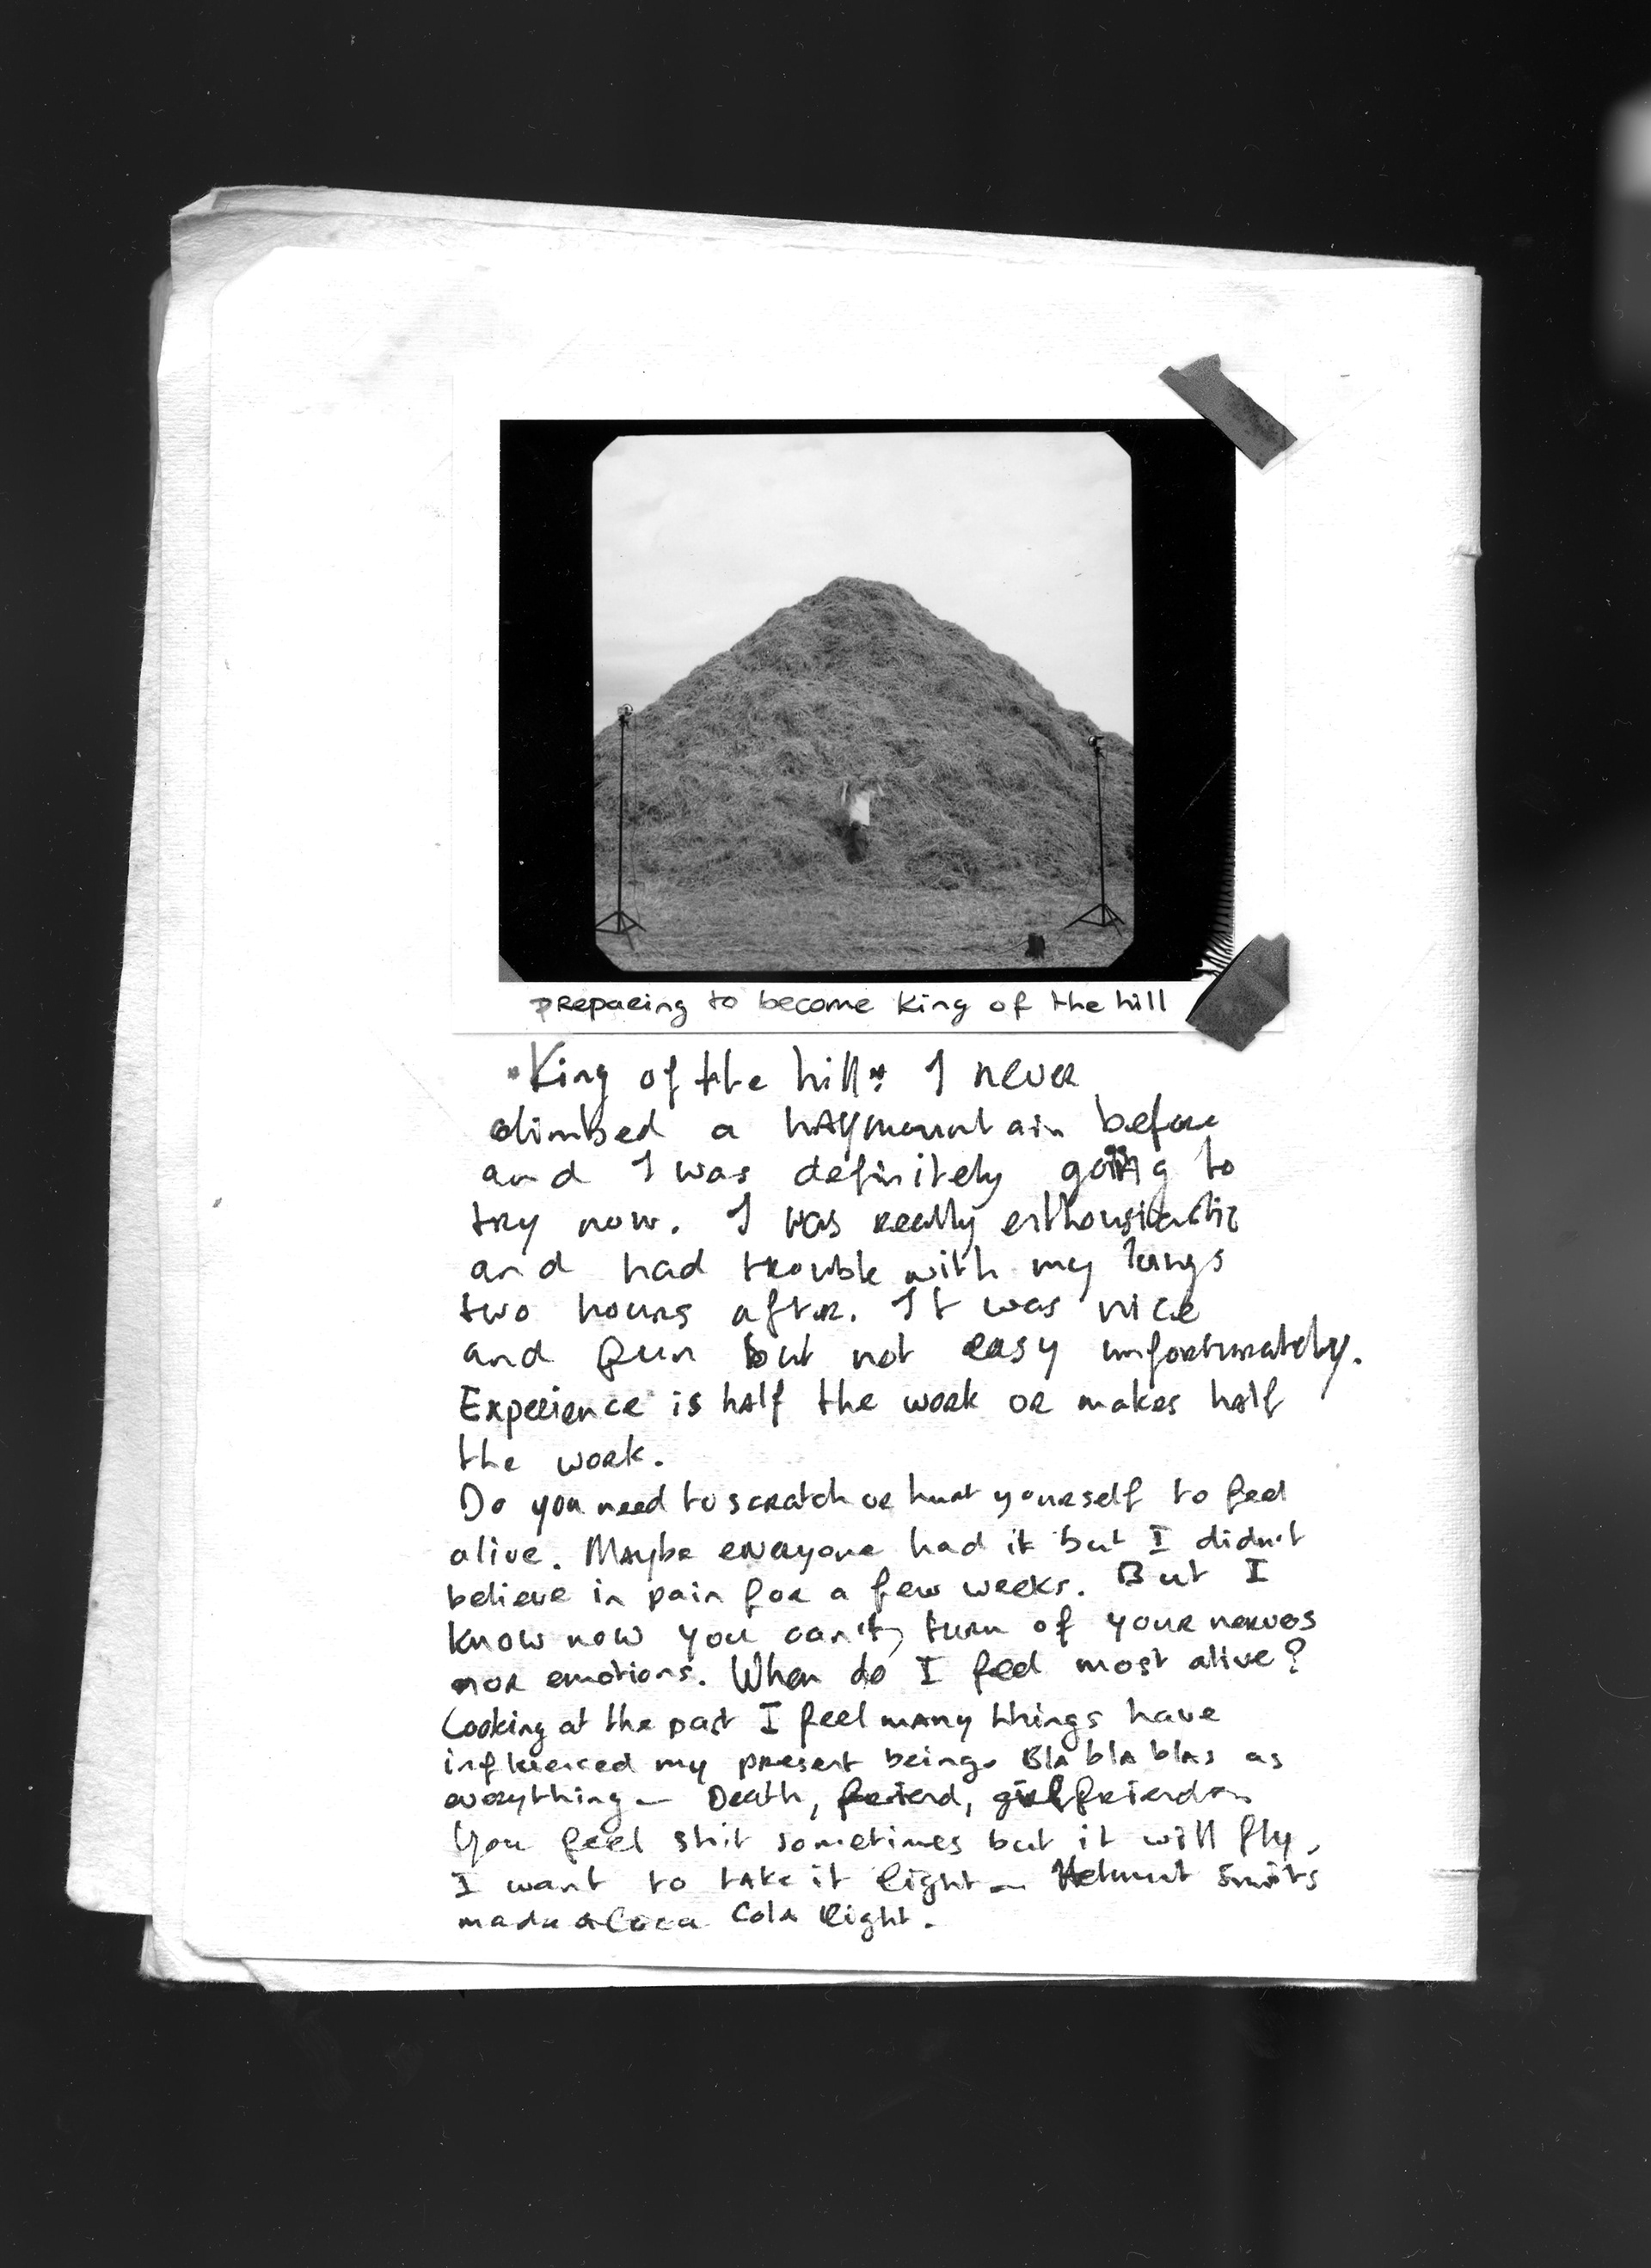 preparing to become King of the hill
"King of the hill" I never
climbed a haymountain before
and I was definitely going to
try now. I was really enthousiastic
and had trouble with my lungs
two hours after. It was nice
and fun but not easy unfortunately.
Experience is half the work or makes half
the work.
Do you need to scratch or hurt yourself to feel
alive. Maybe everyone had it but I didn't
believe in pain for a few weeks. But I
know now you can't, turn of your nerves
nor emotions. When do I feel most alive?
Looking at the past I feel many things have
influenced my present being. Bla bla blas as
everything — Death, friend, girlfriend
You feel shit sometimes but it will fly,
I want to take it light — Helmut Smits
made a Coca Cola light.